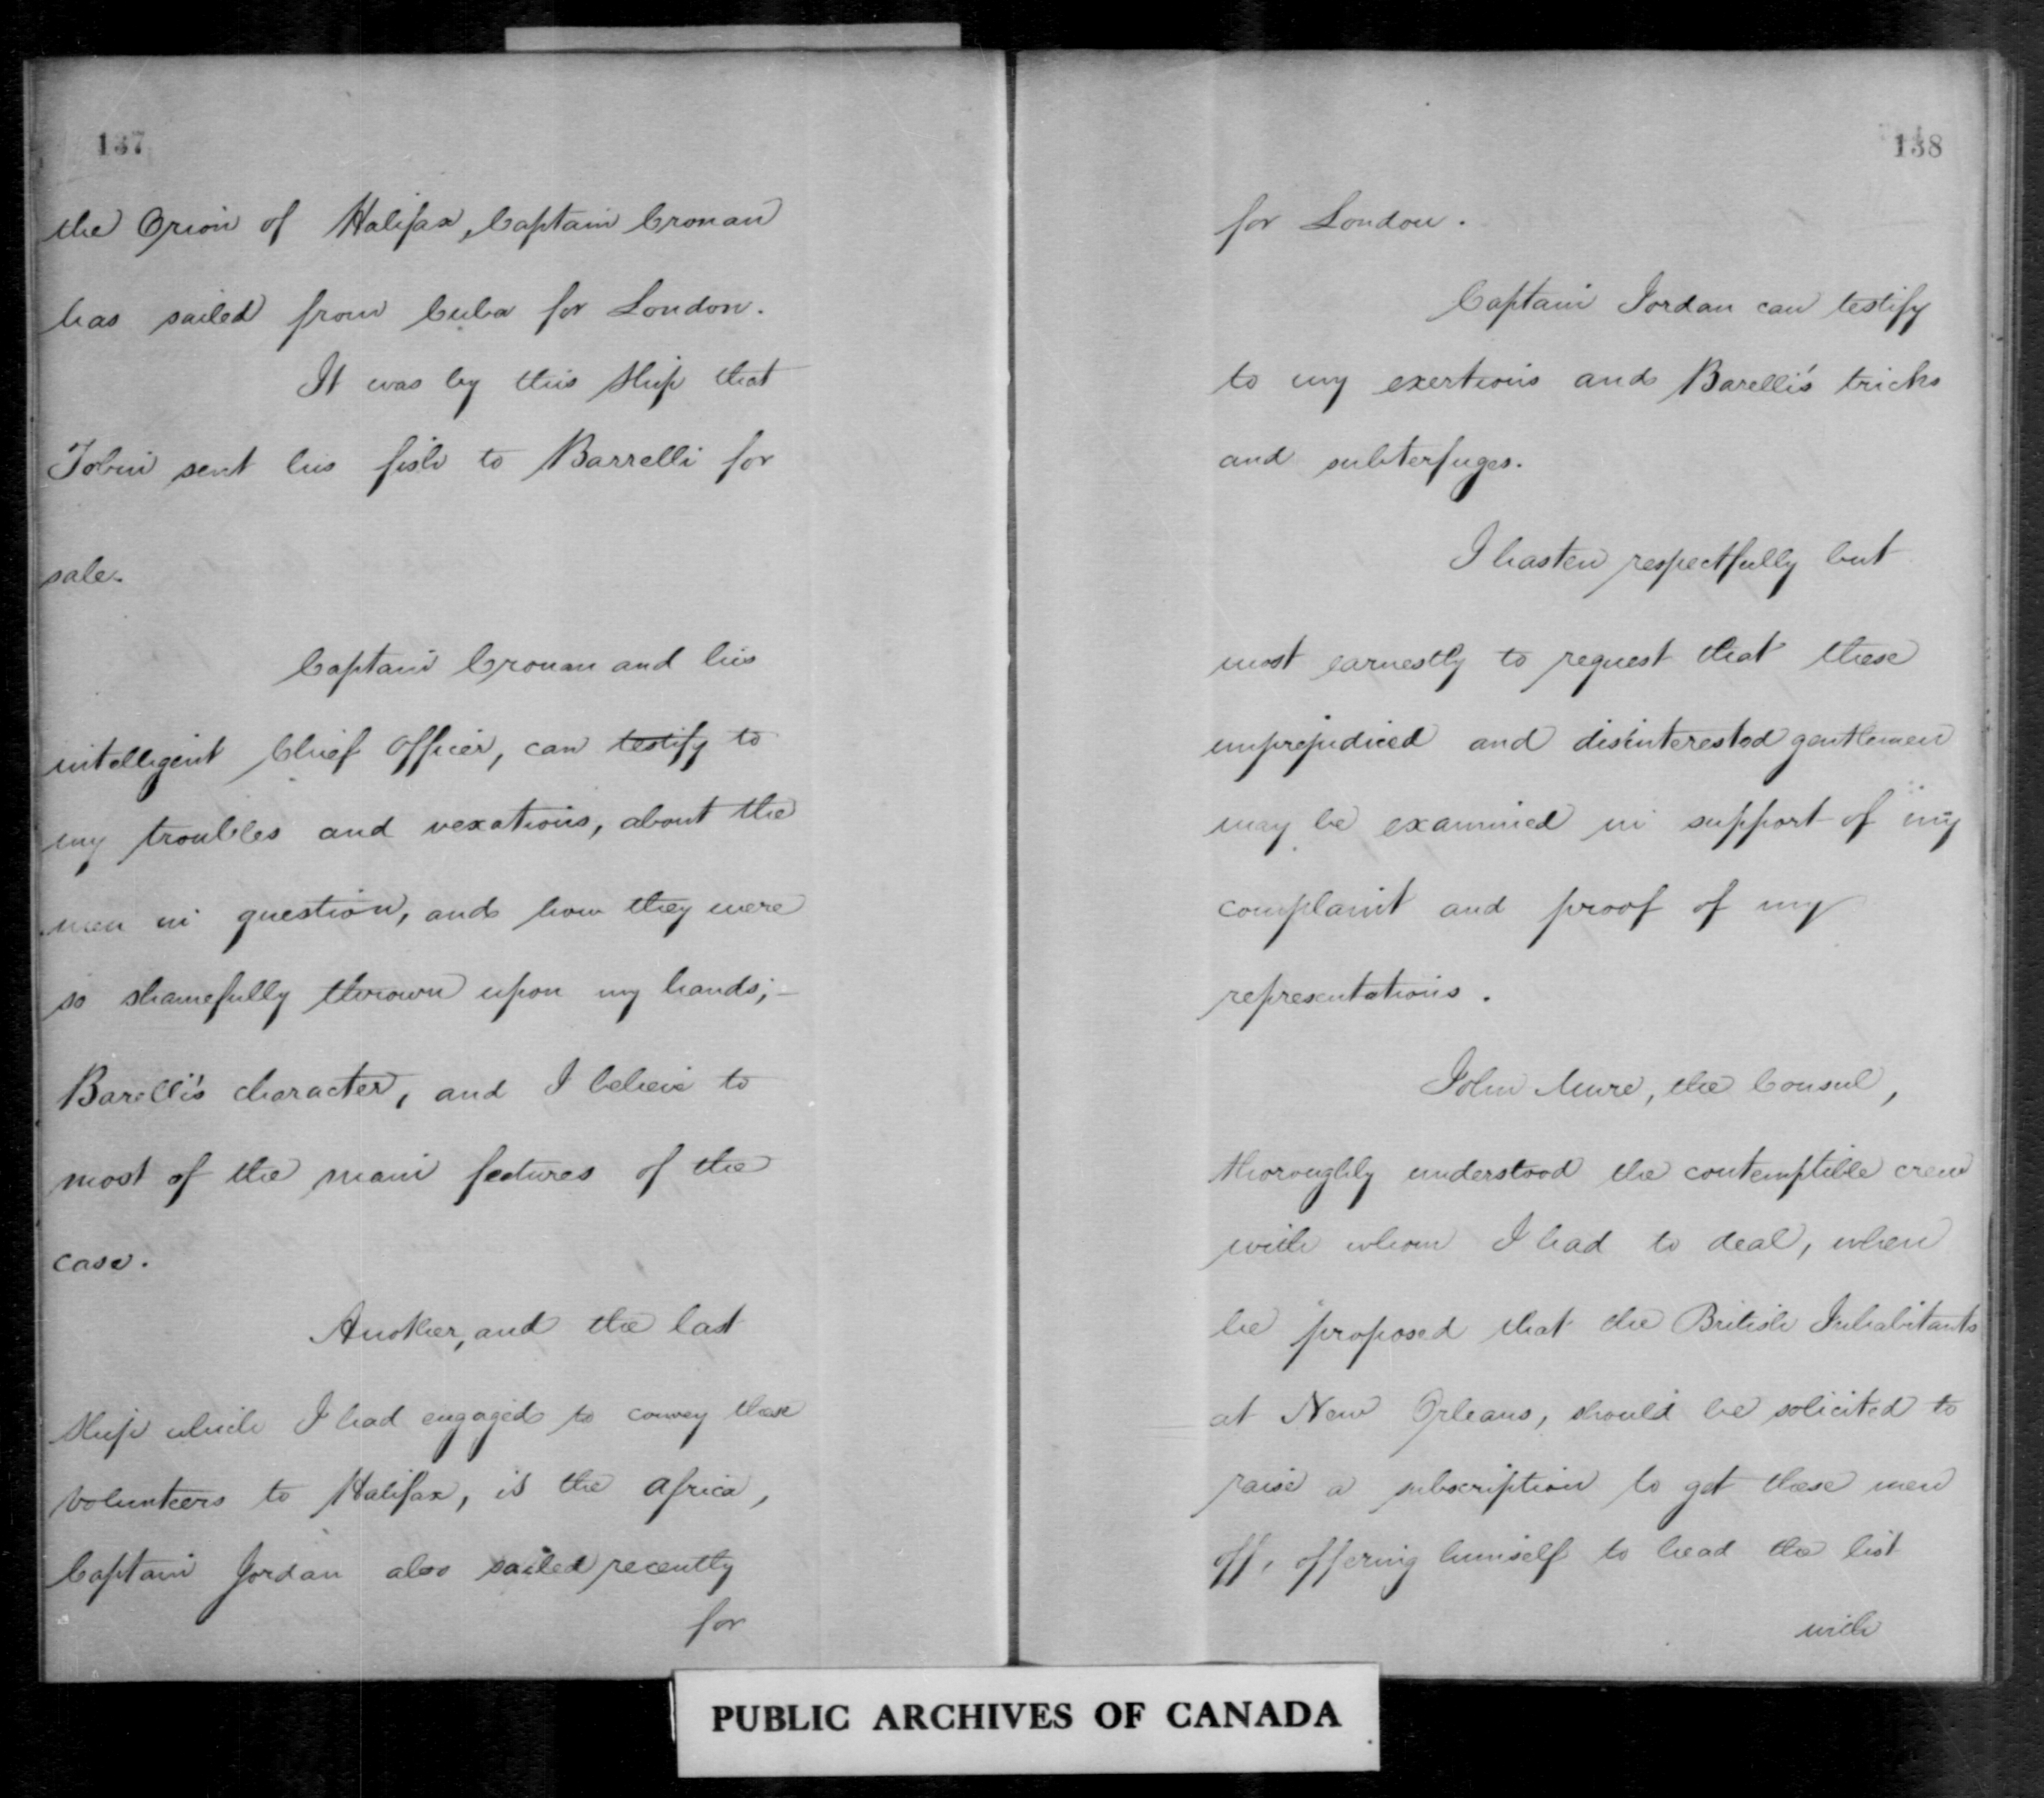 137
the Orion of Halifax, Captain Cronan
has sailed from Cuba for London.
It was by this Ship that
Tobin sent his fish to Barrelli for
sale.
Captain Cronan and his
intelligent Chief Officer, can testify to
my troubles and vexations, about the
men in question, and how they were
so shamefully thrown upon my hands;—
Barelli's character, and I believe to
most of the main features of the
case.
Another, and the last
Ship which I had engaged to convey these
Volunteers to Halifax, is the Africa,
Captain Jordan also sailed recently
for
138
for London.
Captain Jordan can testify
to my exertions and Barelli's tricks
and subterfuges.
I hasten respectfully but
most earnestly to request that these
unprejudiced and disinterested gentlemen
may be examined in support of my
complaint and proof of my
representations.
John Mure, the Consul,
thoroughly understood the contemptible crew
with whom I had to deal, when
he proposed that the British Inhabitants
at New Orleans, should be solicited to
raise a subscription to get these men
off, offering himself to head the list
with
PUBLIC ARCHIVES OF CANADA